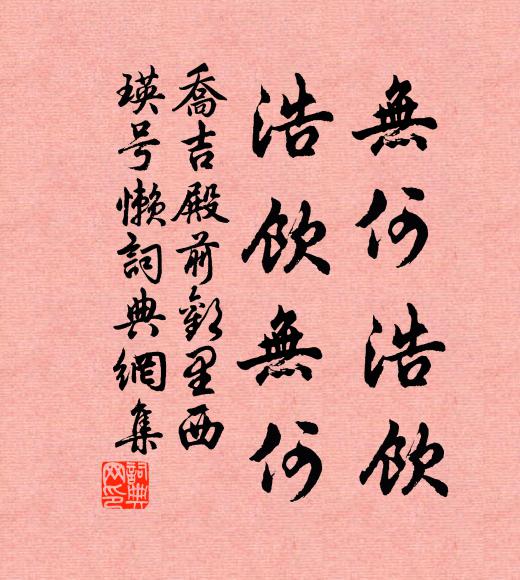 無何浩飲
浩飲無何
喬吉殿前歡里西
瑛号懒詞典網集
詞典网印